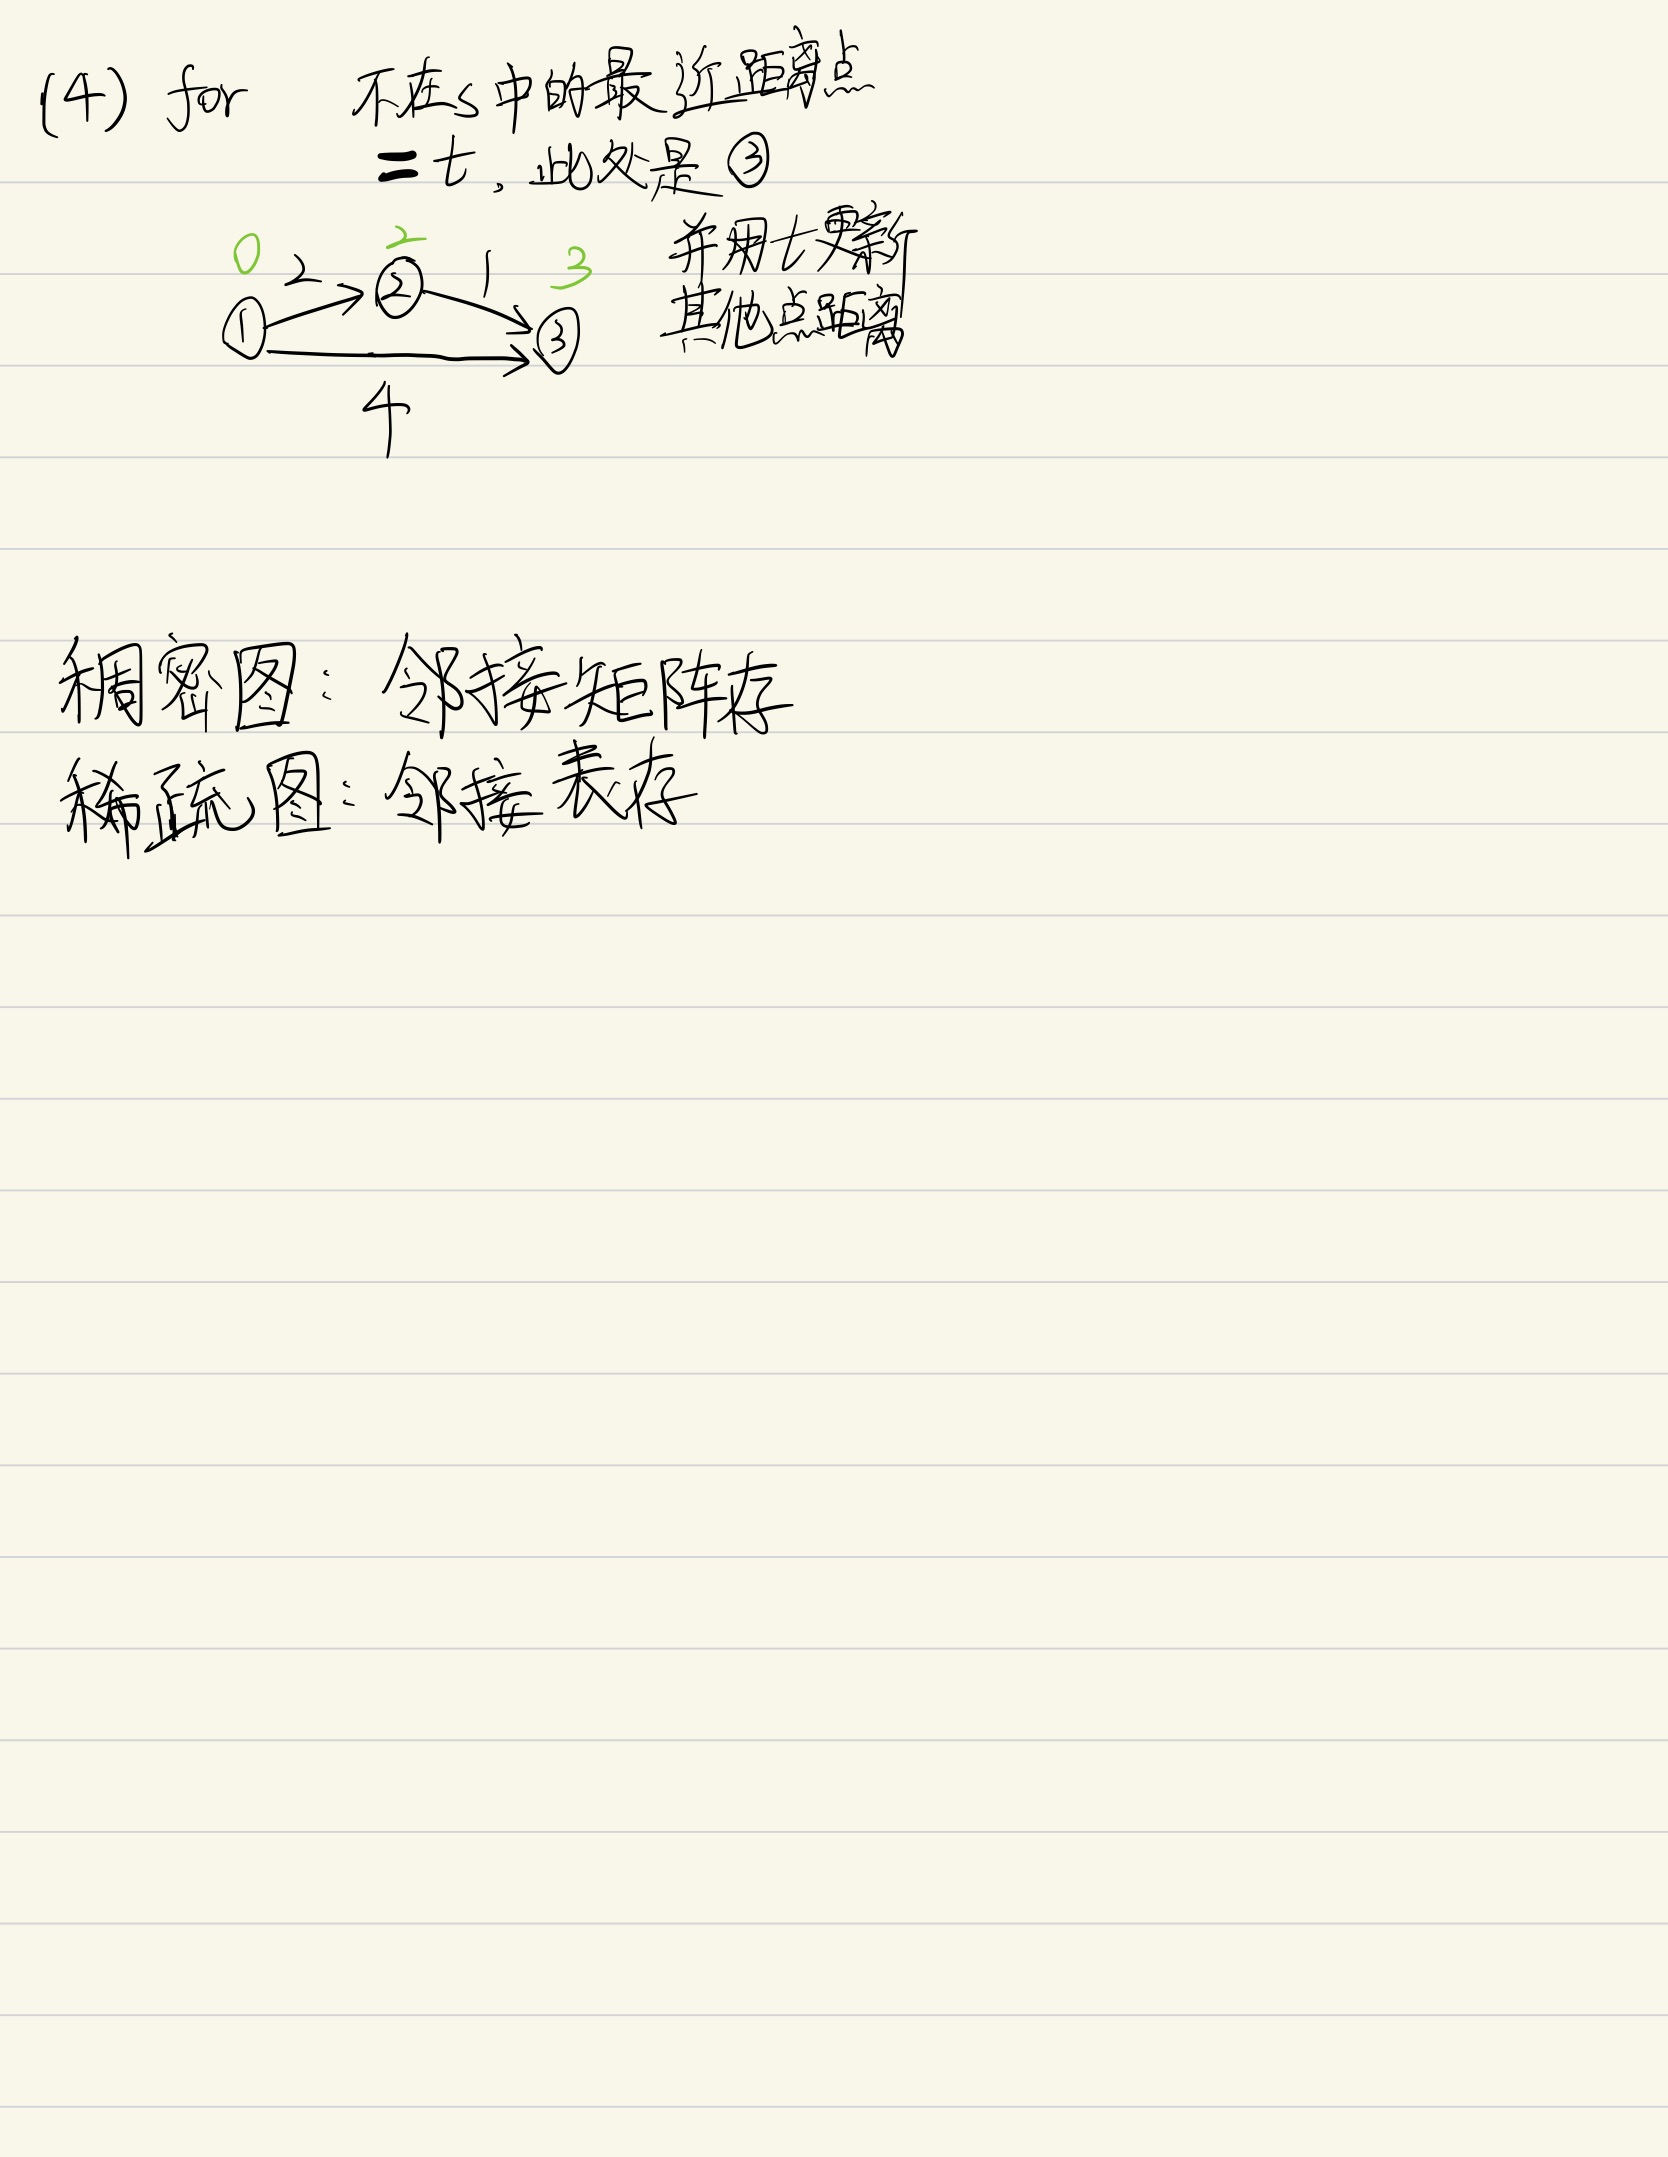 (4) for 不在S中的最近距离点
=t，此处是③
并用t更新
其他点距离
0 2 2 1 3
① ② ③
4
稠密图：邻接矩阵存
稀疏图：邻接表存